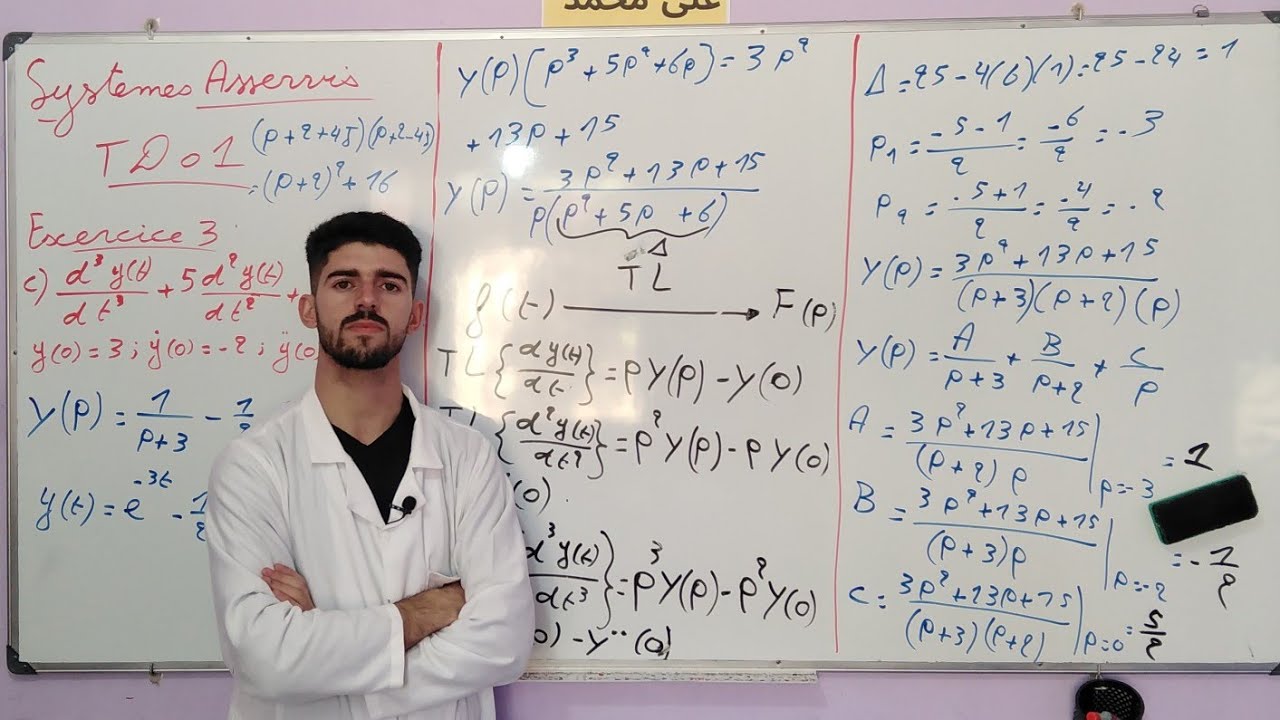 على محمد
Systemes Asservis
TD01
(p+2+4j)(p+2-4j)
=(p+2)²+16
Exercice 3
c) d³y(t)/dt³ + 5 d²y(t)/dt² +
y(0)=3 ; ẏ(0)=-2 ; ÿ(0)
Y(p) = 1/(p+3) - 1/2
y(t) = e^-3t - 1/2
Y(p)[p³+5p²+6p)=3p²
+13p+15
Y(p) = (3p²+13p+15)/(p(p²+5p+6))
Δ
TL
f(t) ⟶ F(p)
TL{dy(t)/dt} = pY(p) - y(0)
TL{d²y(t)/dt²} = p²Y(p) - pY(0)
(0).
d³y(t)/dt³} = p³Y(p) - p²Y(0)
0) - Y¨(0)
Δ = 25-4(6)(1)=25-24=1
p₁ = (-5-1)/2 = -6/2 = -3
p₂ = (-5+1)/2 = -4/2 = -2
Y(p) = (3p²+13p+15)/((p+3)(p+2)(p))
Y(p) = A/(p+3) + B/(p+2) + C/p
A = (3p²+13p+15)/((p+2)p)|p=-3 = 1
B = (3p²+13p+15)/((p+3)p)|p=-2 = -1/2
C = (3p²+13p+15)/((p+3)(p+2))|p=0 = 5/2